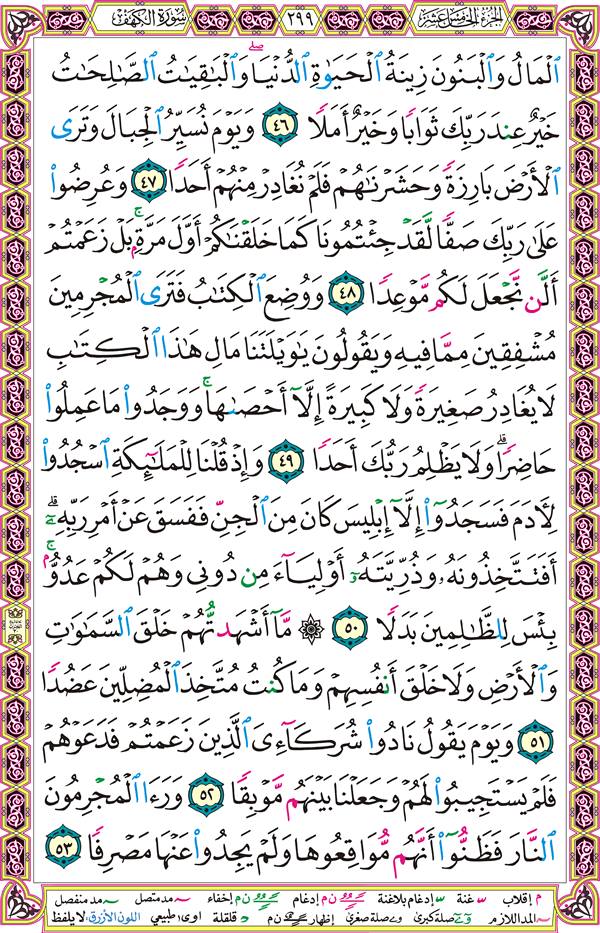 سورة الكهف ٢٩٩ الجزء الخامس عشر
ٱلْمَالُ وَٱلْبَنُونَ زِينَةُ ٱلْحَيَوٰةِ ٱلدُّنْيَا ۖ وَٱلْبَٰقِيَٰتُ ٱلصَّٰلِحَٰتُ
خَيْرٌ عِندَ رَبِّكَ ثَوَابًا وَخَيْرٌ أَمَلًا ٤٦ وَيَوْمَ نُسَيِّرُ ٱلْجِبَالَ وَتَرَى
ٱلْأَرْضَ بَارِزَةً وَحَشَرْنَٰهُمْ فَلَمْ نُغَادِرْ مِنْهُمْ أَحَدًا ٤٧ وَعُرِضُوا۟
عَلَىٰ رَبِّكَ صَفًّا لَّقَدْ جِئْتُمُونَا كَمَا خَلَقْنَٰكُمْ أَوَّلَ مَرَّةٍۭ ۚ بَلْ زَعَمْتُمْ
أَلَّن نَّجْعَلَ لَكُم مَّوْعِدًا ٤٨ وَوُضِعَ ٱلْكِتَٰبُ فَتَرَى ٱلْمُجْرِمِينَ
مُشْفِقِينَ مِمَّا فِيهِ وَيَقُولُونَ يَٰوَيْلَتَنَا مَالِ هَٰذَا ٱلْكِتَٰبِ
لَا يُغَادِرُ صَغِيرَةً وَلَا كَبِيرَةً إِلَّآ أَحْصَىٰهَا ۚ وَوَجَدُوا۟ مَا عَمِلُوا۟
حَاضِرًا ۗ وَلَا يَظْلِمُ رَبُّكَ أَحَدًا ٤٩ وَإِذْ قُلْنَا لِلْمَلَٰٓئِكَةِ ٱسْجُدُوا۟
لِـَٔادَمَ فَسَجَدُوٓا۟ إِلَّآ إِبْلِيسَ كَانَ مِنَ ٱلْجِنِّ فَفَسَقَ عَنْ أَمْرِ رَبِّهِۦٓ ۗ
أَفَتَتَّخِذُونَهُۥ وَذُرِّيَّتَهُۥٓ أَوْلِيَآءَ مِن دُونِى وَهُمْ لَكُمْ عَدُوٌّۢ ۚ
بِئْسَ لِلظَّٰلِمِينَ بَدَلًا ٥٠ ۞ مَّآ أَشْهَدتُّهُمْ خَلْقَ ٱلسَّمَٰوَٰتِ
وَٱلْأَرْضِ وَلَا خَلْقَ أَنفُسِهِمْ وَمَا كُنتُ مُتَّخِذَ ٱلْمُضِلِّينَ عَضُدًا
٥١ وَيَوْمَ يَقُولُ نَادُوا۟ شُرَكَآءِىَ ٱلَّذِينَ زَعَمْتُمْ فَدَعَوْهُمْ
فَلَمْ يَسْتَجِيبُوا۟ لَهُمْ وَجَعَلْنَا بَيْنَهُم مَّوْبِقًا ٥٢ وَرَءَا ٱلْمُجْرِمُونَ
ٱلنَّارَ فَظَنُّوٓا۟ أَنَّهُم مُّوَاقِعُوهَا وَلَمْ يَجِدُوا۟ عَنْهَا مَصْرِفًا ٥٣
م إقلاب غنة إدغام بلاغنة ن م إدغام إخفاء مد متصل مد منفصل
المد اللازم صلة كبرى صلة صغرى إظهار ن م قلقلة اوى طبيعي اللون الأزرق: لا يلفظ